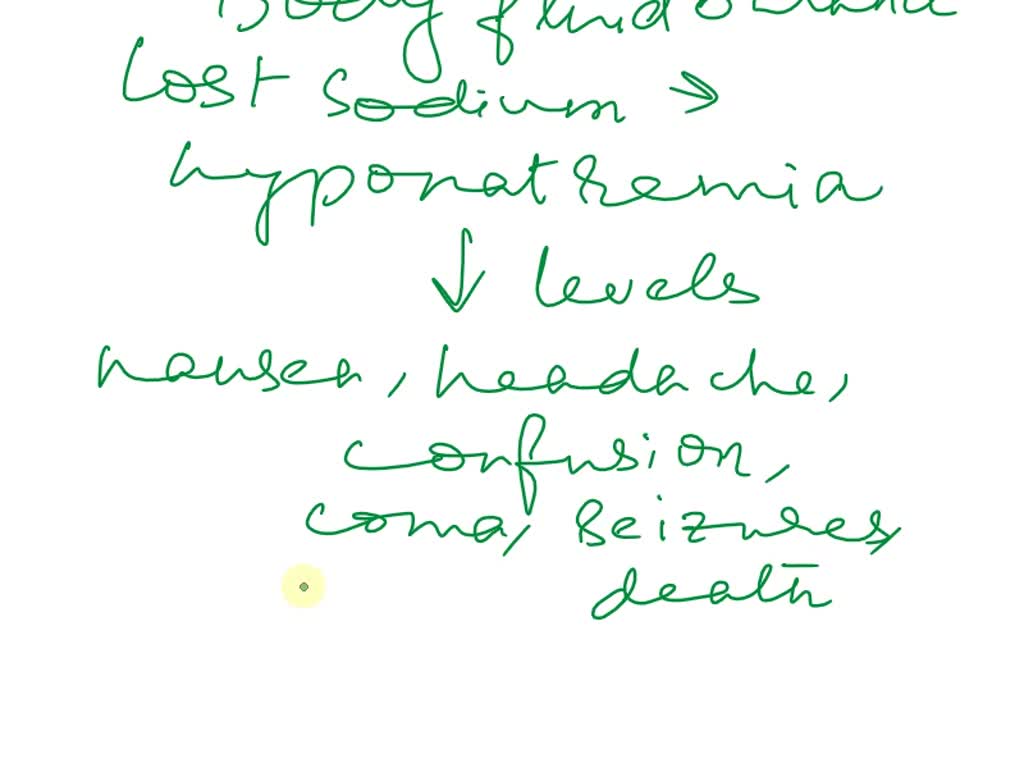 Body fluid
Lost Sodium →
hyponatremia
↓ levels
nausea, headache,
confusion,
coma, seizures,
death